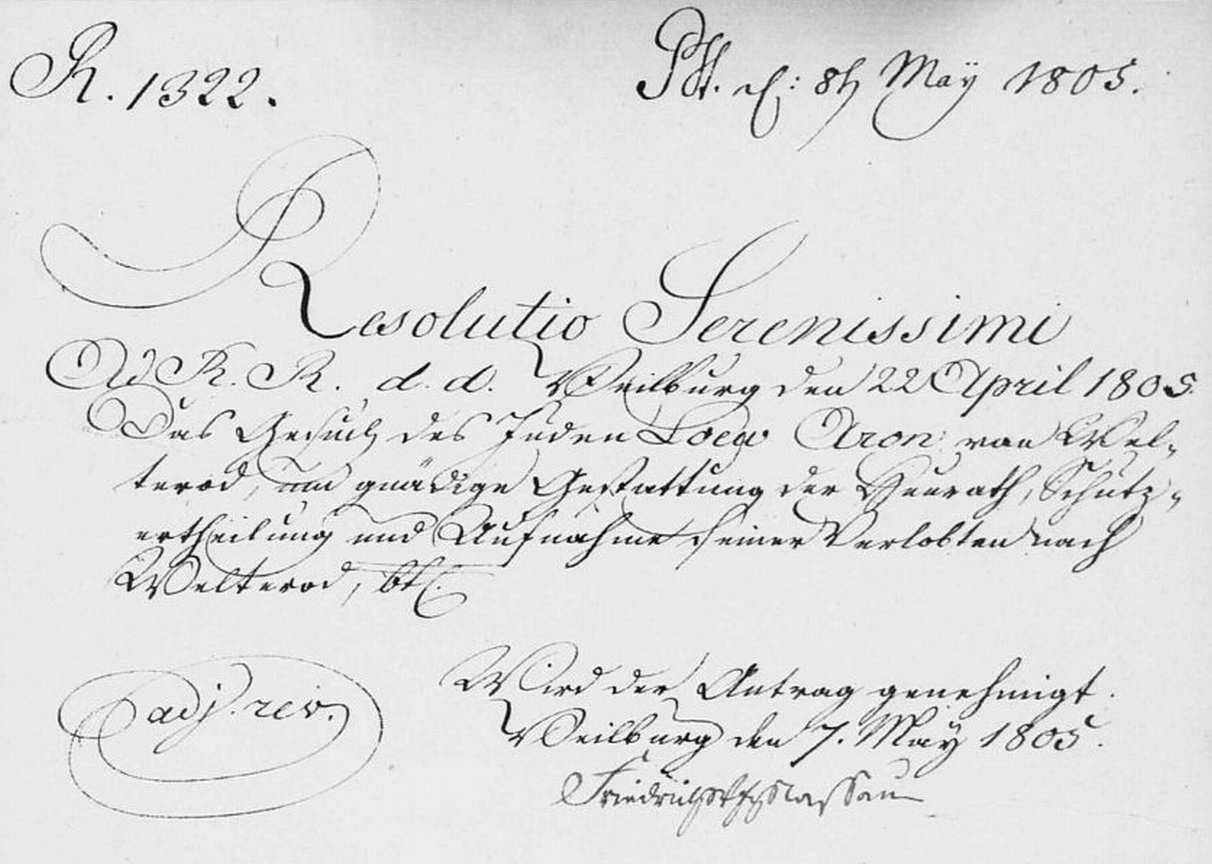 R. 1322.
Pst. d: 8t May 1805.
Resolutio Serenissimi
Ad R. R. d. d. Weilburg den 22 April 1805.
Das Gesuch des Juden Loew Aron von Wel-
terod, um gnädige Gestattung der Heurath, Schutz-
ertheilung und Aufnahme seiner Verlobten nach
Welterod, btr.
adj. rev.
Wird der Antrag genehmigt.
Weilburg den 7. May 1805.
Friedrich Nassau